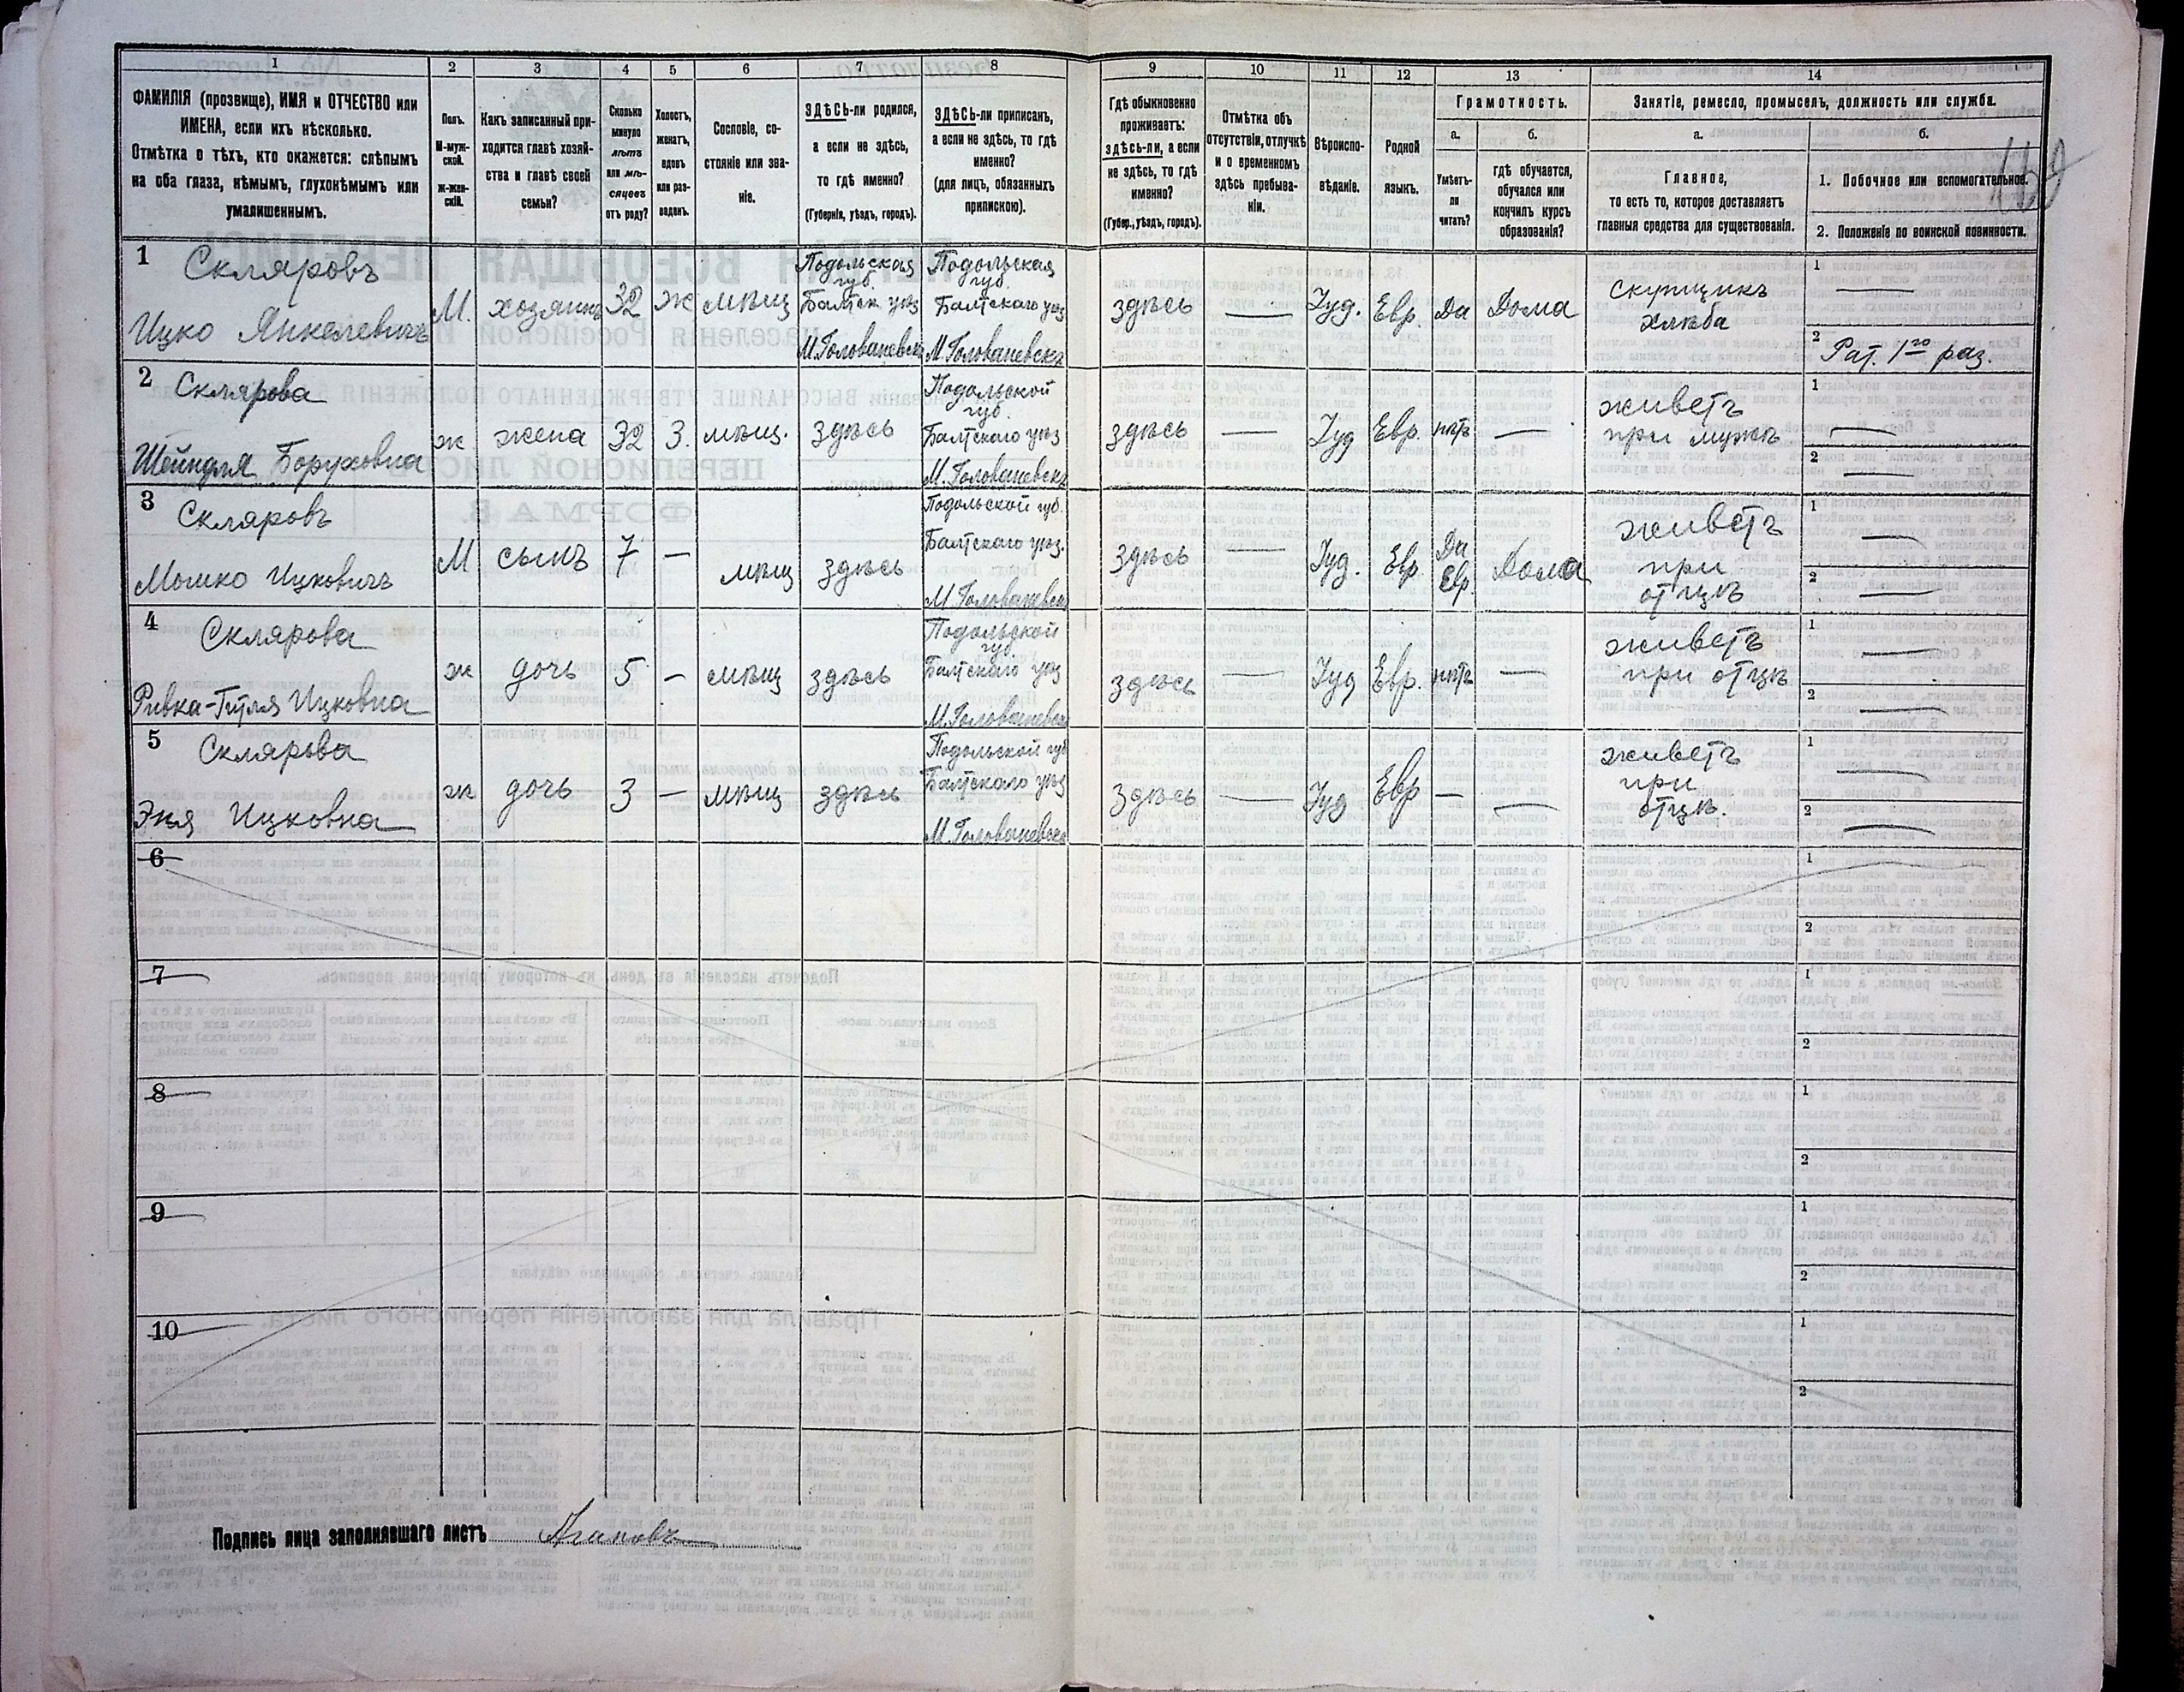 1 2 3 4 5 6 7 8 9 10 11 12 13 14
ФАМИЛІЯ (прозвище), ИМЯ и ОТЧЕСТВО или
ИМЕНА, если ихъ нѣсколько.
Отмѣтка о тѣхъ, кто окажется: слѣпымъ
на оба глаза, нѣмымъ, глухонѣмымъ или
умалишеннымъ.
Полъ.
М-муж-
ской.
ж-жен-
скій.
Какъ записанный при-
ходится главѣ хозяй-
ства и главѣ своей
семьи?
Сколько
минуло
лѣтъ
или мѣ-
сяцевъ
отъ роду?
Холостъ,
женатъ,
вдовъ
или раз-
веденъ.
Сословіе, со-
стояніе или зва-
ніе.
ЗДѢСЬ-ли родился,
а если не здѣсь,
то гдѣ именно?
(Губернія, уѣздъ, городъ).
ЗДѢСЬ-ли приписанъ,
а если не здѣсь, то гдѣ
именно?
(для лицъ, обязанныхъ
припискою).
Гдѣ обыкновенно
проживаетъ:
здѣсь-ли, а если
не здѣсь, то гдѣ
именно?
(Губер., уѣздъ, городъ).
Отмѣтка объ
отсутствіи, отлучкѣ
и о временномъ
здѣсь пребыва-
ніи.
Вѣроиспо-
вѣданіе.
Родной
языкъ.
Грамотность.
а.
б.
Умѣетъ-
ли
читать?
гдѣ обучается,
обучался или
кончилъ курсъ
образованія?
Занятіе, ремесло, промыселъ, должность или служба.
а.
б.
Главное,
то есть то, которое доставляетъ
главныя средства для существованія.
1. Побочное или вспомогательное.
2. Положеніе по воинской повинности.
1
Скляровъ
Ицко Янкелевичъ
М.
хозяинъ
32
ж
мѣщ
Подольская
губ.
Балтск уѣз
М. Голованевскъ
Подольская
губ.
Балтскаго уѣз
М. Голованевскъ
здѣсь
—
Іуд.
Евр.
Да
Дома
скупщикъ
хлѣба
1 —
2 Рат. 1го раз.
2
Склярова
Шейндля Боруховна
ж
жена
32
З.
мѣщ.
здѣсь
Подольской
губ.
Балтскаго уѣз
М. Голованевскъ
здѣсь
—
Іуд
Евр.
нѣтъ
—
живетъ
при мужѣ
1 —
2 —
3
Скляровъ
Мошко Ицковичъ
М
сынъ
7
—
мѣщ
здѣсь
Подольской губ.
Балтскаго уѣз.
М Голованевскъ
здѣсь
—
Іуд.
Евр
Да
Евр.
Дома
живетъ
при
отцѣ
1 —
2 —
4
Склярова
Ривка-Гитля Ицковна
ж
дочь
5
—
мѣщ
здѣсь
Подольской
губ
Балтскаго уѣз
М. Голованевскъ
здѣсь
—
Іуд
Евр.
нѣтъ
—
живетъ
при отцѣ
1 —
2 —
5
Склярова
Эня Ицковна
ж
дочь
3
—
мѣщ
здѣсь
Подольской губ
Балтскаго уѣз
М. Голованевскъ
здѣсь
—
Іуд
Евр
—
—
живетъ
при
отцѣ.
1 —
2 —
6
1
2
7
1
2
8
1
2
9
1
2
10
1
2
Подпись лица заполнявшаго листъ